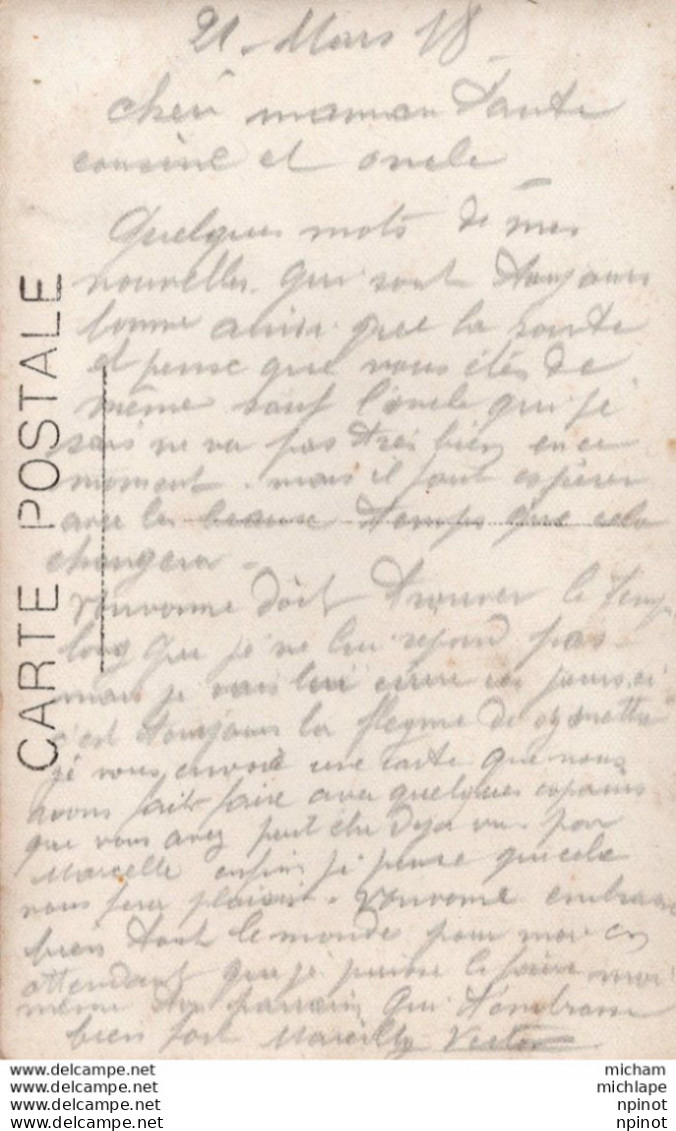 21 - Mars 18
cher maman tante
cousine et oncle
Quelques mots de mes
nouvelles qui sont toujours
bonne ainsi que la sante
et pense que vous étes de
même sauf l'oncle qui je
sais ne va pas tres bien en ce
moment. mais il faut espérer
avec les beause temps que cela
changera -
doit trouver le temp
long que je ne lui repond pas
mais je vais lui ecrire ces jours ci
c'est toujours la flegme de s'y mettre
je vous envoie une carte que nous
avons fait faire avec quelques copains
que vous avez peut etre deja vu par
Marcelle enfin je pense que cela
vous fera plaisir. embrasse
bien tout le monde pour moi en
attendant que je puisse le faire moi
même ton parrain qui t'embrasse
bien fort
CARTE POSTALE
micham
michlape
npinot
npinot